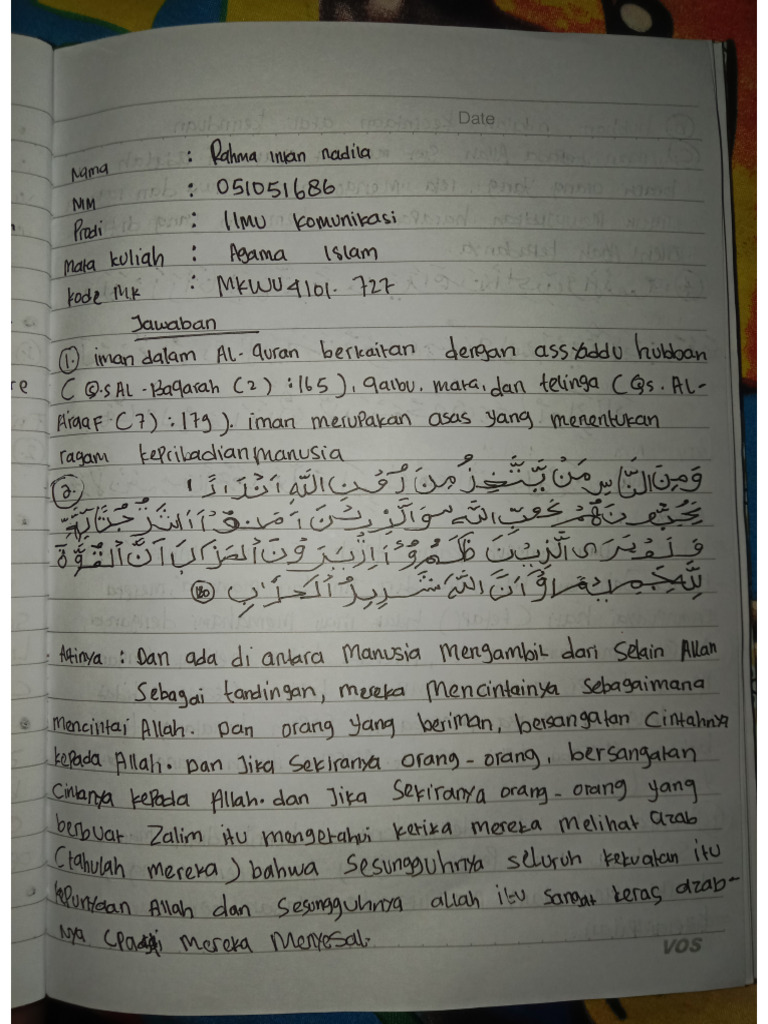 Date
Nama : Rahma intan nadila
NIM : 051051686
Prodi : Ilmu komunikasi
Mata kuliah : Agama Islam
kode MK : MKWU4101. 727
Jawaban
1. iman dalam Al-Quran berkaitan dengan assyaddu hubban
( Q.S Al-Baqarah (2) : 165), qalbu, mata, dan telinga (Qs. Al-
Araaf (7) : 179). iman merupakan asas yang menentukan
re
ragam kepribadian manusia
2. وَمِنَ النَّاسِ مَنْ يَّتَّخِذُ مِنْ دُوْنِ اللّٰهِ اَنْدَادًا
اللّٰه
الَّذِيْنَ
لِلّٰهِ جَمِيْعًا وَّاَنَّ اللّٰهَ شَدِيْدُ الْعَذَابِ 180
Artinya : Dan ada di antara Manusia Mengambil dari Selain Allah
Sebagai tandingan, mereka Mencintainya sebagaimana
mencintai Allah. Dan orang yang beriman, bersangatan Cintahnya
kepada Allah. Dan Jika Sekiranya orang-orang, bersangatan
Cintanya kepada Allah. dan Jika Sekiranya orang-orang yang
berbuat Zalim itu mengetahui ketika mereka melihat azab
(tahulah mereka) bahwa Sesungguhnya seluruh kekuatan itu
kepunyaan Allah dan Sesungguhnya allah itu sangat keras azab-
nya mereka Menyesal.
VOS